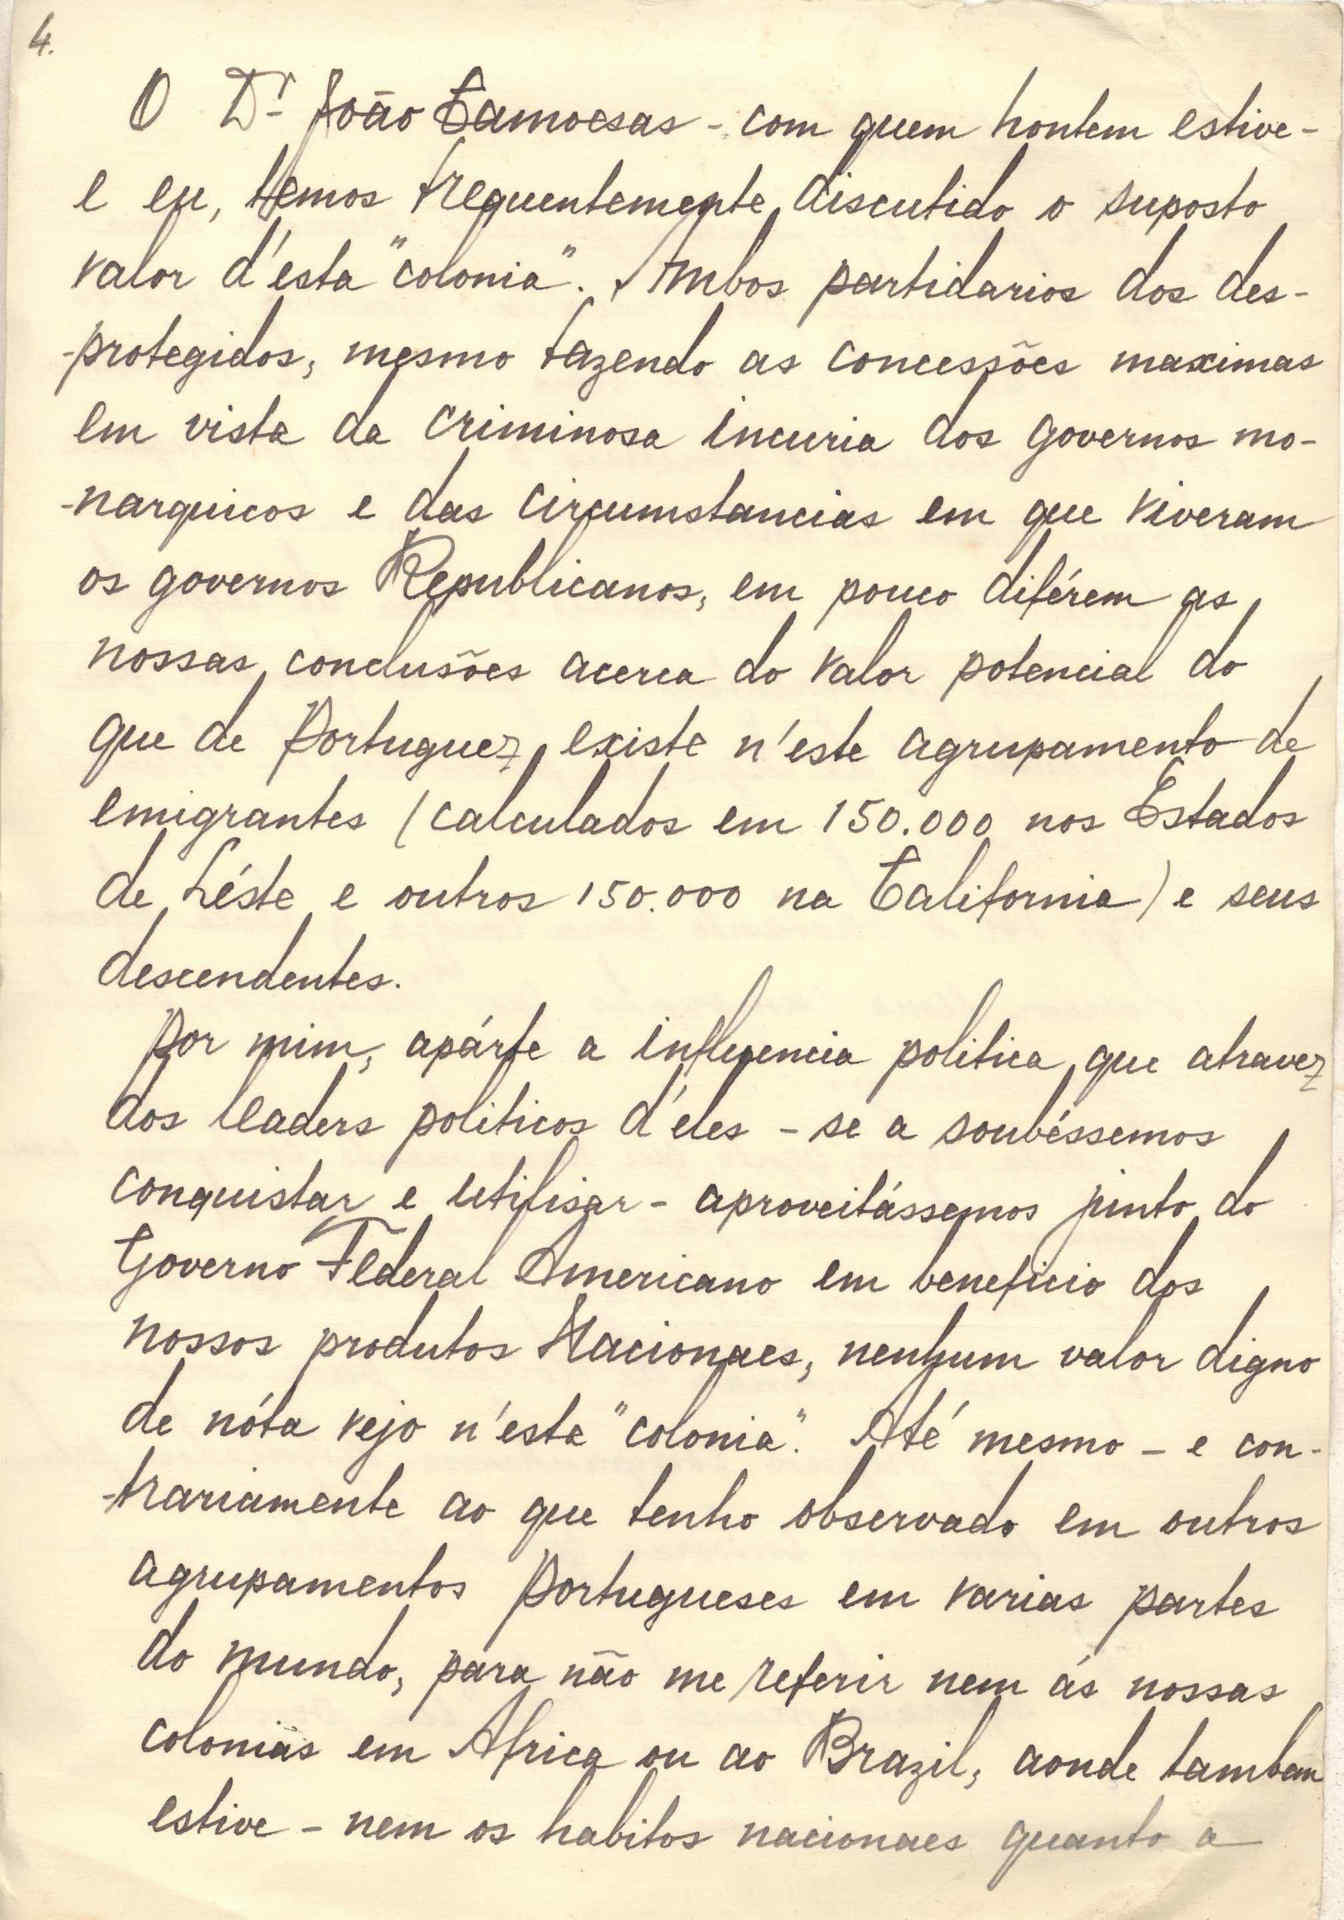 4.
O Dr. João Camoesas - com quem hontem estive -
e eu, temos frequentemente discutido o suposto
valor d'esta "colonia". Ambos partidarios dos des-
-protegidos, mesmo fazendo as concessões maximas
em vista da criminosa incuria dos governos mo-
-narquicos e das circumstancias em que viveram
os governos Republicanos, em pouco diférem as
nossas conclusões acerca do valor potencial do
que de Portuguez existe n'este agrupamento de
emigrantes (calculados em 150.000 nos Estados
de Léste e outros 150.000 na California) e seus
descendentes.
Por mim, apárte a influencia politica que atravez
dos leaders politicos d'eles - se a soubéssemos
conquistar e utilisar - aproveitássemos junto do
Governo Federal Americano em beneficio dos
nossos produtos Nacionaes, nenhum valor digno
de nóta vejo n'esta "colonia". Até mesmo - e con-
-trariamente ao que tenho observado em outros
agrupamentos Portugueses em varias partes
do mundo, para não me referir nem ás nossas
colonias em Africa ou ao Brazil, aonde tambem
estive - nem os habitos nacionaes quanto a